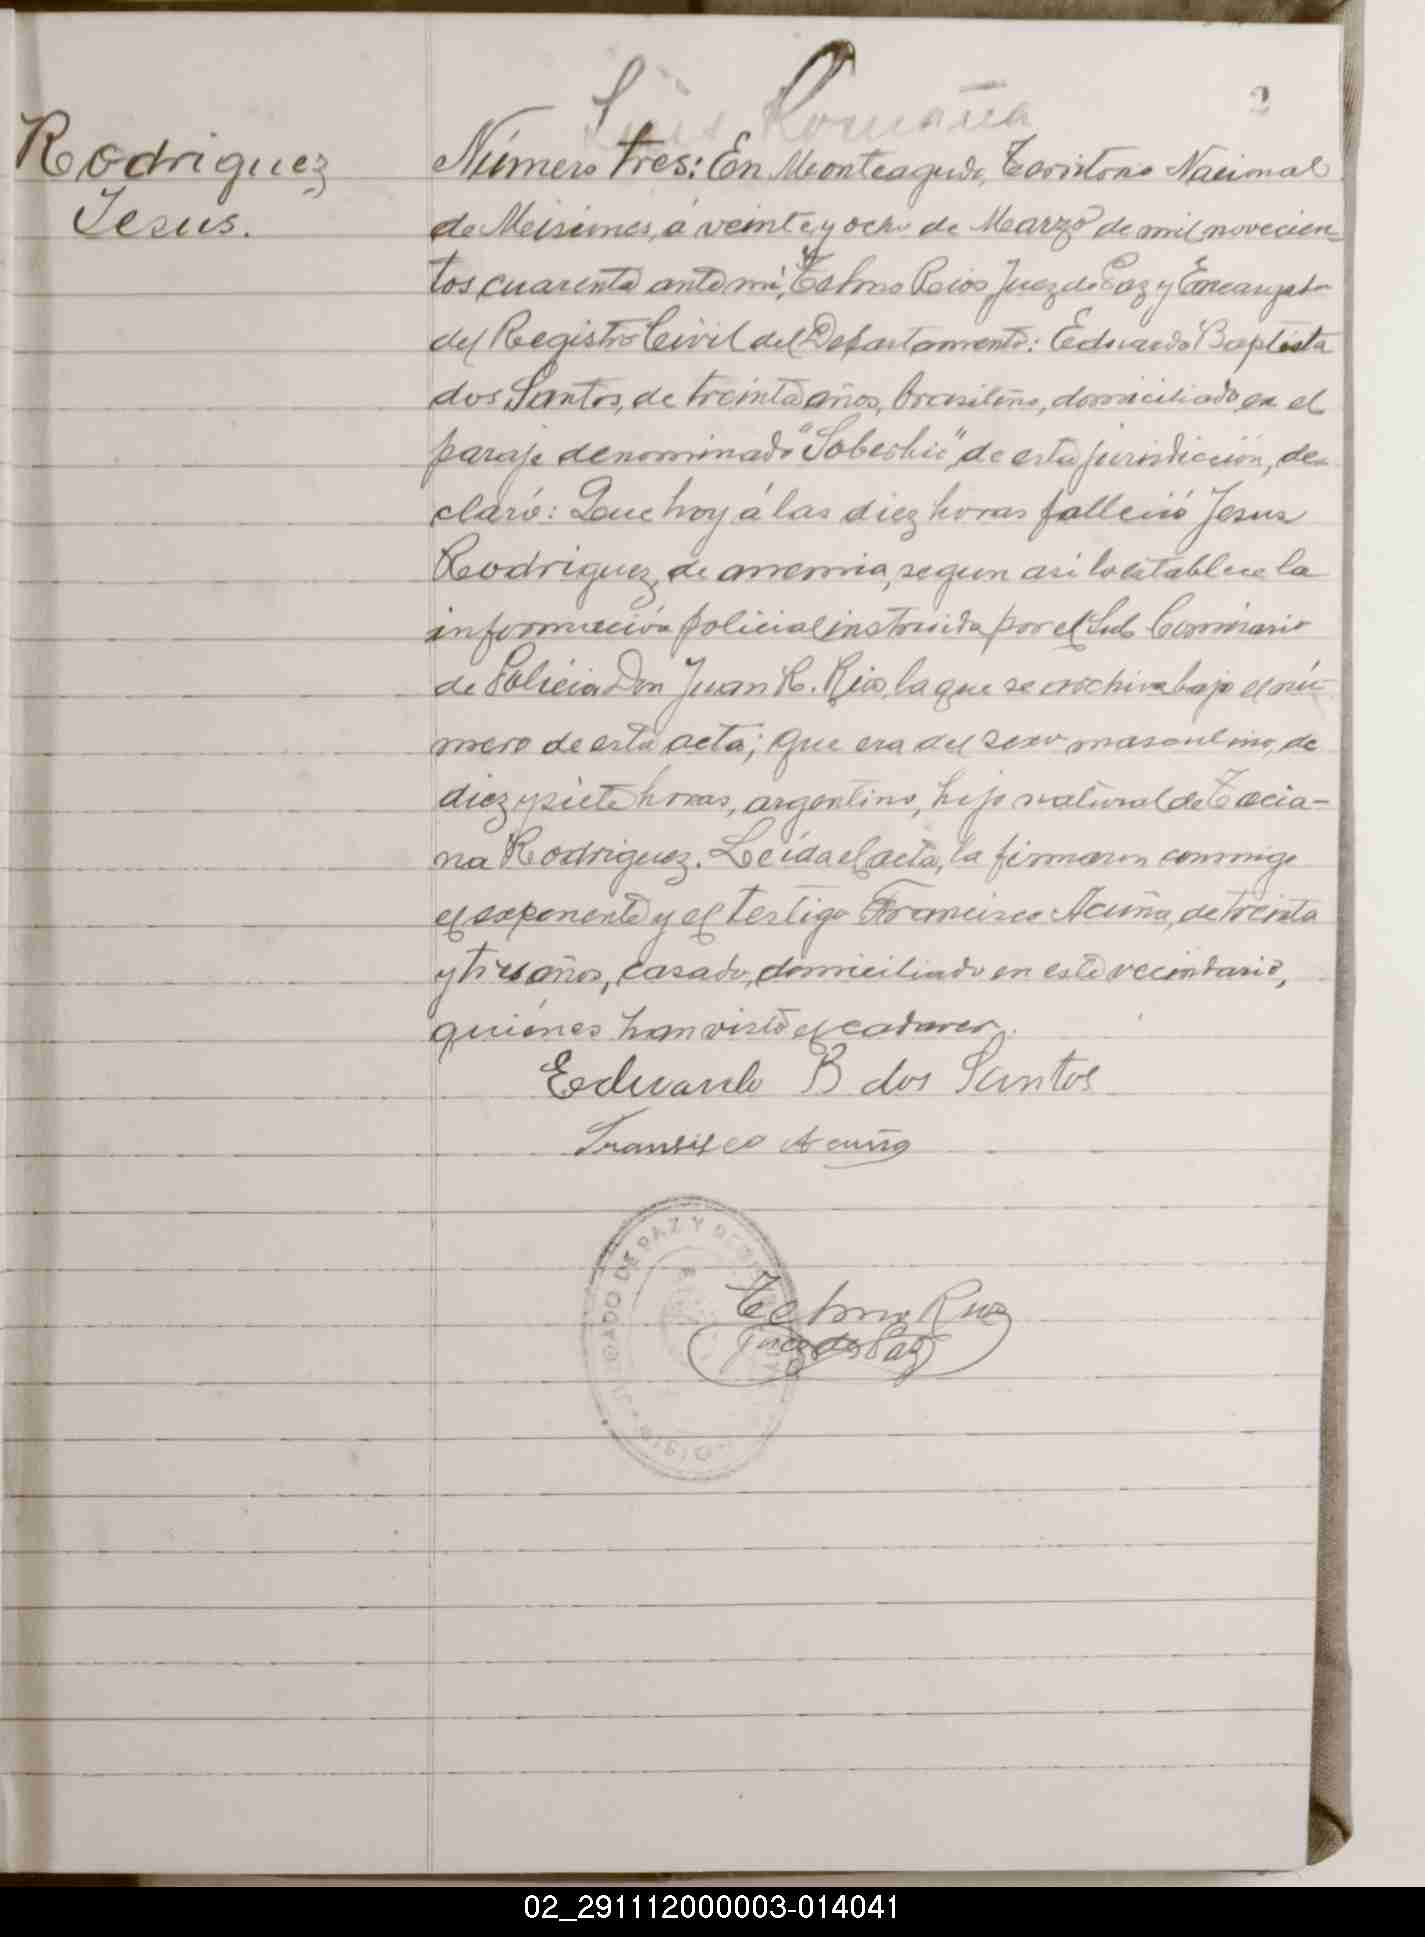 2
Luis Romaña
Rodriguez
Jesus.
Número tres: En Monteagudo, Territorio Nacional
de Misiones, á veinte y ocho de Marzo de mil novecien-
tos cuarenta ante mí, Telmo Rios Juez de Paz y Encargado
del Registro Civil del Departamento: Eduardo Baptista
dos Santos, de treinta años, brasileño, domiciliado en el
paraje denominado "Soberbio", de esta jurisdicción, de-
claró: Que hoy á las diez horas falleció Jesus
Rodriguez, de anemia, segun asi lo establece la
información policial instruida por el Sub Comisario
de Policia Don Juan R. Rios, la que se archiva bajo el nú-
mero de esta acta; que era del sexo masculino, de
diez y siete horas, argentino, hijo natural de
na Rodriguez. Leida el acta, la firmaron conmigo
el exponente y el testigo Francisco Acuña, de treinta
y tres años, casado, domiciliado en este vecindario,
quiénes han visto el cadaver.
Eduardo B dos Santos
Fransisco Acuña
JUZGADO DE PAZ Y REGISTRO
Telmo Rios
Juez de Paz
02_291112000003-014041